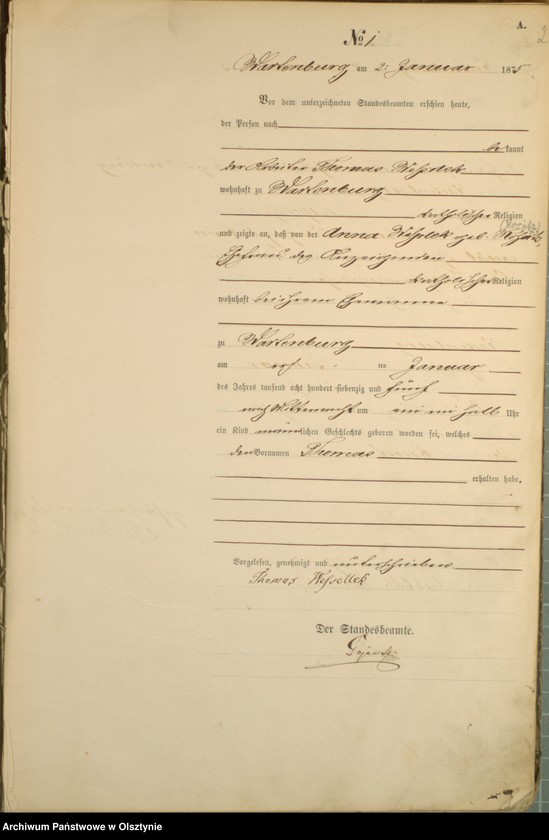 A.
2
№ 1.
Wartenburg am 2. Januar 1875
Vor dem unterzeichneten Standesbeamten erschien heute,
der Person nach
bekannt
der Arbeiter Thomas
wohnhaft zu Wartenburg
katholischer Religion
und zeigte an, daß von der Anna geb.
Ehefrau des Anzeigenden
katholischer Religion
wohnhaft bei ihrem Ehemanne
zu Wartenburg
am ersten Januar
des Jahres tausend acht hundert siebenzig und fünf
nach Mitternacht um ein ein halb Uhr
ein Kind männlichen Geschlechts geboren worden sei, welches
den Vornamen Thomas
erhalten habe.
Vorgelesen, genehmigt und unterschrieben
Thomas Wessollek
Der Standesbeamte.
Archiwum Państwowe w Olsztynie